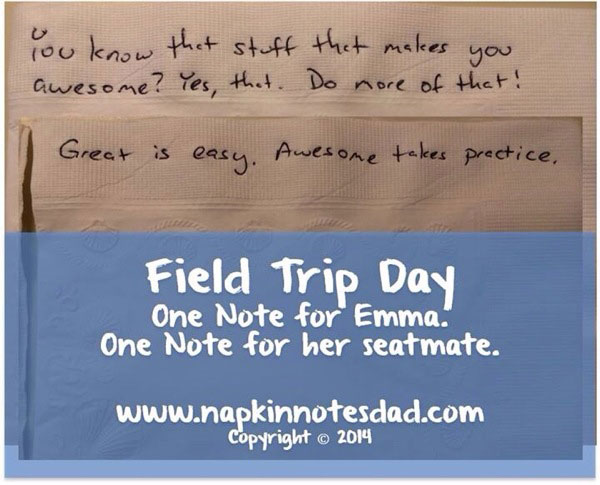 You know that stuff that makes you
awesome? Yes, that. Do more of that!
Great is easy. Awesome takes practice.
Field Trip Day
One Note for Emma.
One Note for her seatmate.
www.napkinnotesdad.com
Copyright © 2014